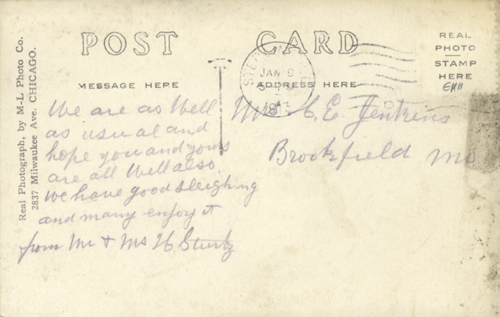 POST CARD
MESSAGE HERE
ADDRESS HERE
REAL
PHOTO
STAMP
HERE
Real Photograph, by M-L Photo Co.
2837 Milwaukee Ave. CHICAGO.
JAN
We are as well
as usual and
hope you and yours
are all well also.
we have good sleighing
and many enjoy it
from Mr & Ms H. Sturtz
C E Jenkins
Brookfield Mo